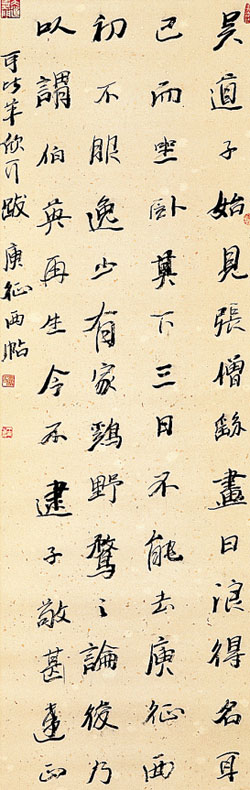 吳道子始見張僧繇畫曰浪得名耳
已而坐卧其下三日不能去庾征西
初不服逸少有家鷄野鶩之論後乃
以謂伯英再生今不逮子敬甚遠正
可比羊欣耳 跋庾征西 臨